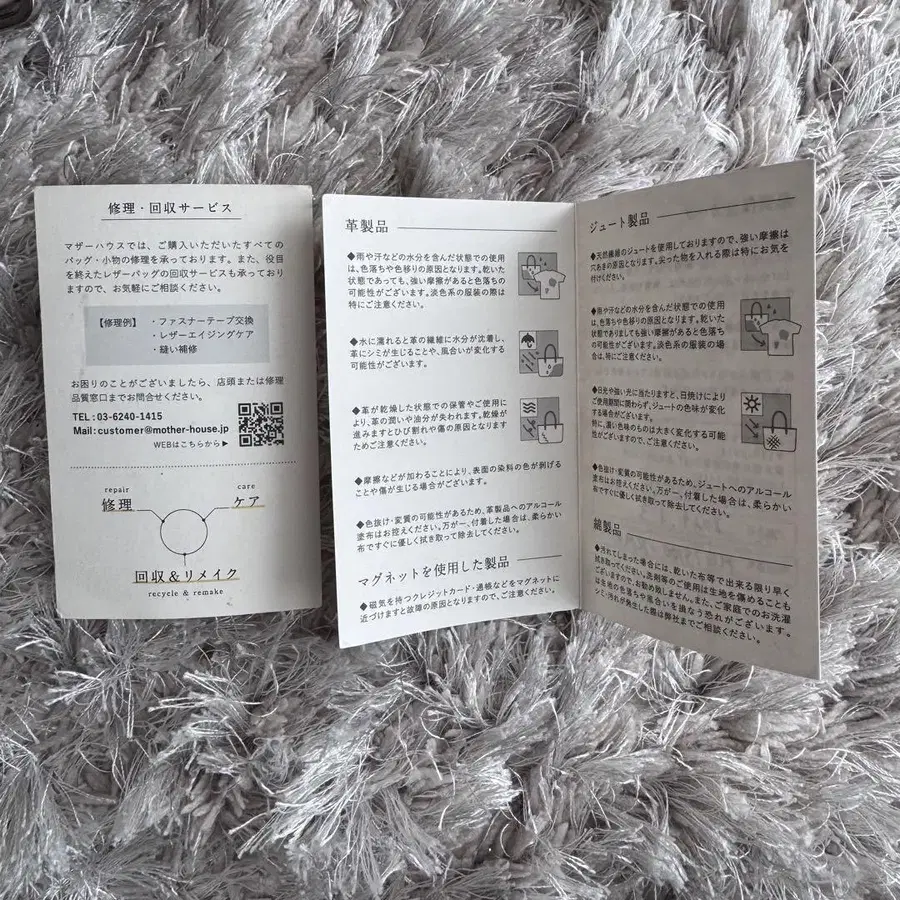 修理・回収サービス
マザーハウスでは、ご購入いただいたすべての
バッグ・小物の修理を承っております。また、役目
を終えたレザーバッグの回収サービスも承っており
ますので、お気軽にご相談ください。
【修理例】 ・ファスナーテープ交換
・レザーエイジングケア
・縫い補修
お困りのことがございましたら、店頭または修理
品質窓口までお問合せください。
TEL : 03-6240-1415
Mail : customer@mother-house.jp
WEBはこちらから▶
repair
修理
care
ケア
回収&リメイク
recycle & remake
革製品
◆雨や汗などの水分を含んだ状態での使用
は、色落ちや色移りの原因となります。乾いた
状態であっても、強い摩擦があると色落ちの
可能性がございます。淡色系の服装の際は
特にご注意ください。
◆水に濡れると革の繊維に水分が沈着し、
革にシミが生じることや、風合いが変化する
可能性がございます。
◆革が乾燥した状態での保管やご使用に
より、革の潤いや油分が失われます。乾燥が
進みますとひび割れや傷の原因となります
ためご注意ください。
◆摩擦などが加わることにより、表面の染料の色が剥げる
ことや傷が生じる場合がございます。
◆色抜け・変質の可能性があるため、革製品へのアルコール
塗布はお控えください。万が一、付着した場合は、柔らかい
布ですぐに優しく拭き取って除去してください。
マグネットを使用した製品
◆磁気を持つクレジットカード・通帳などをマグネットに
近づけますと故障の原因となりますので、ご注意ください。
ジュート製品
◆天然繊維のジュートを使用しておりますので、強い摩擦は
穴あきの原因となります。尖った物を入れる際は特にお気を
付けください。
◆雨や汗などの水分を含んだ状態での使用
は、色落ちや色移りの原因となります。乾いた
状態でありましても強い摩擦があると色落ち
の可能性がございます。淡色系の服装の場
合は、特にご注意ください。
◆日光や強い光に当たりますと、日焼けにより
ご使用期間に関わらず、ジュートの色味が変化
する場合がございます。
特に、濃い色味のものは大きく変化する可能
性がございますので、ご注意ください。
◆色抜け・変質の可能性があるため、ジュートへのアルコール
塗布はお控えください。万が一、付着した場合は、柔らかい
布ですぐに優しく拭き取って除去してください。
綿製品
◆汚れてしまった場合には、乾いた布等で出来る限り早く
拭き取ってください。洗剤等のご使用は生地を傷めることも
ございますので、お勧め致しません。また、ご家庭でのお洗濯
は生地の色落ちや風合いを損なう恐れがございます。
シミ・汚れが発生した際は弊社までご相談ください。